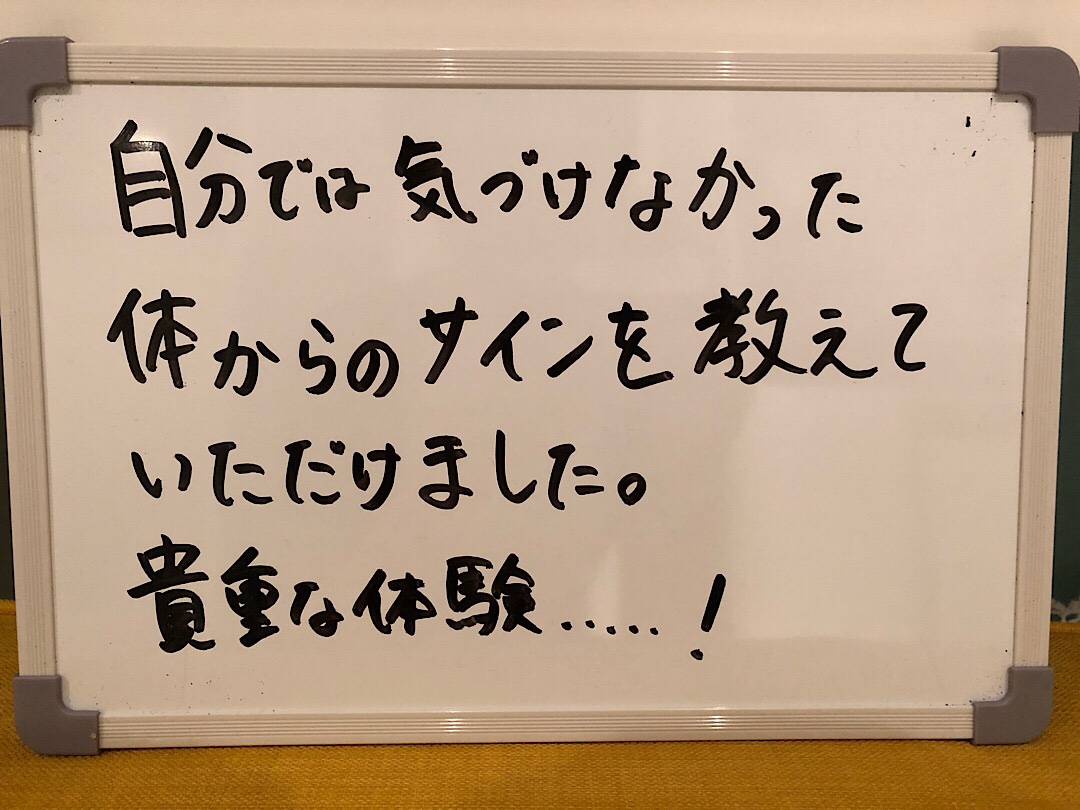 自分では気づけなかった
体からのサインを教えて
いただけました。
貴重な体験.....!